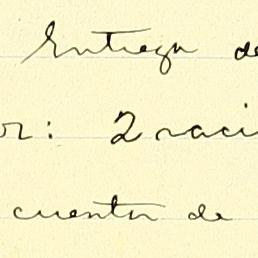 Entrega de
or: 2 raci
cuenta de